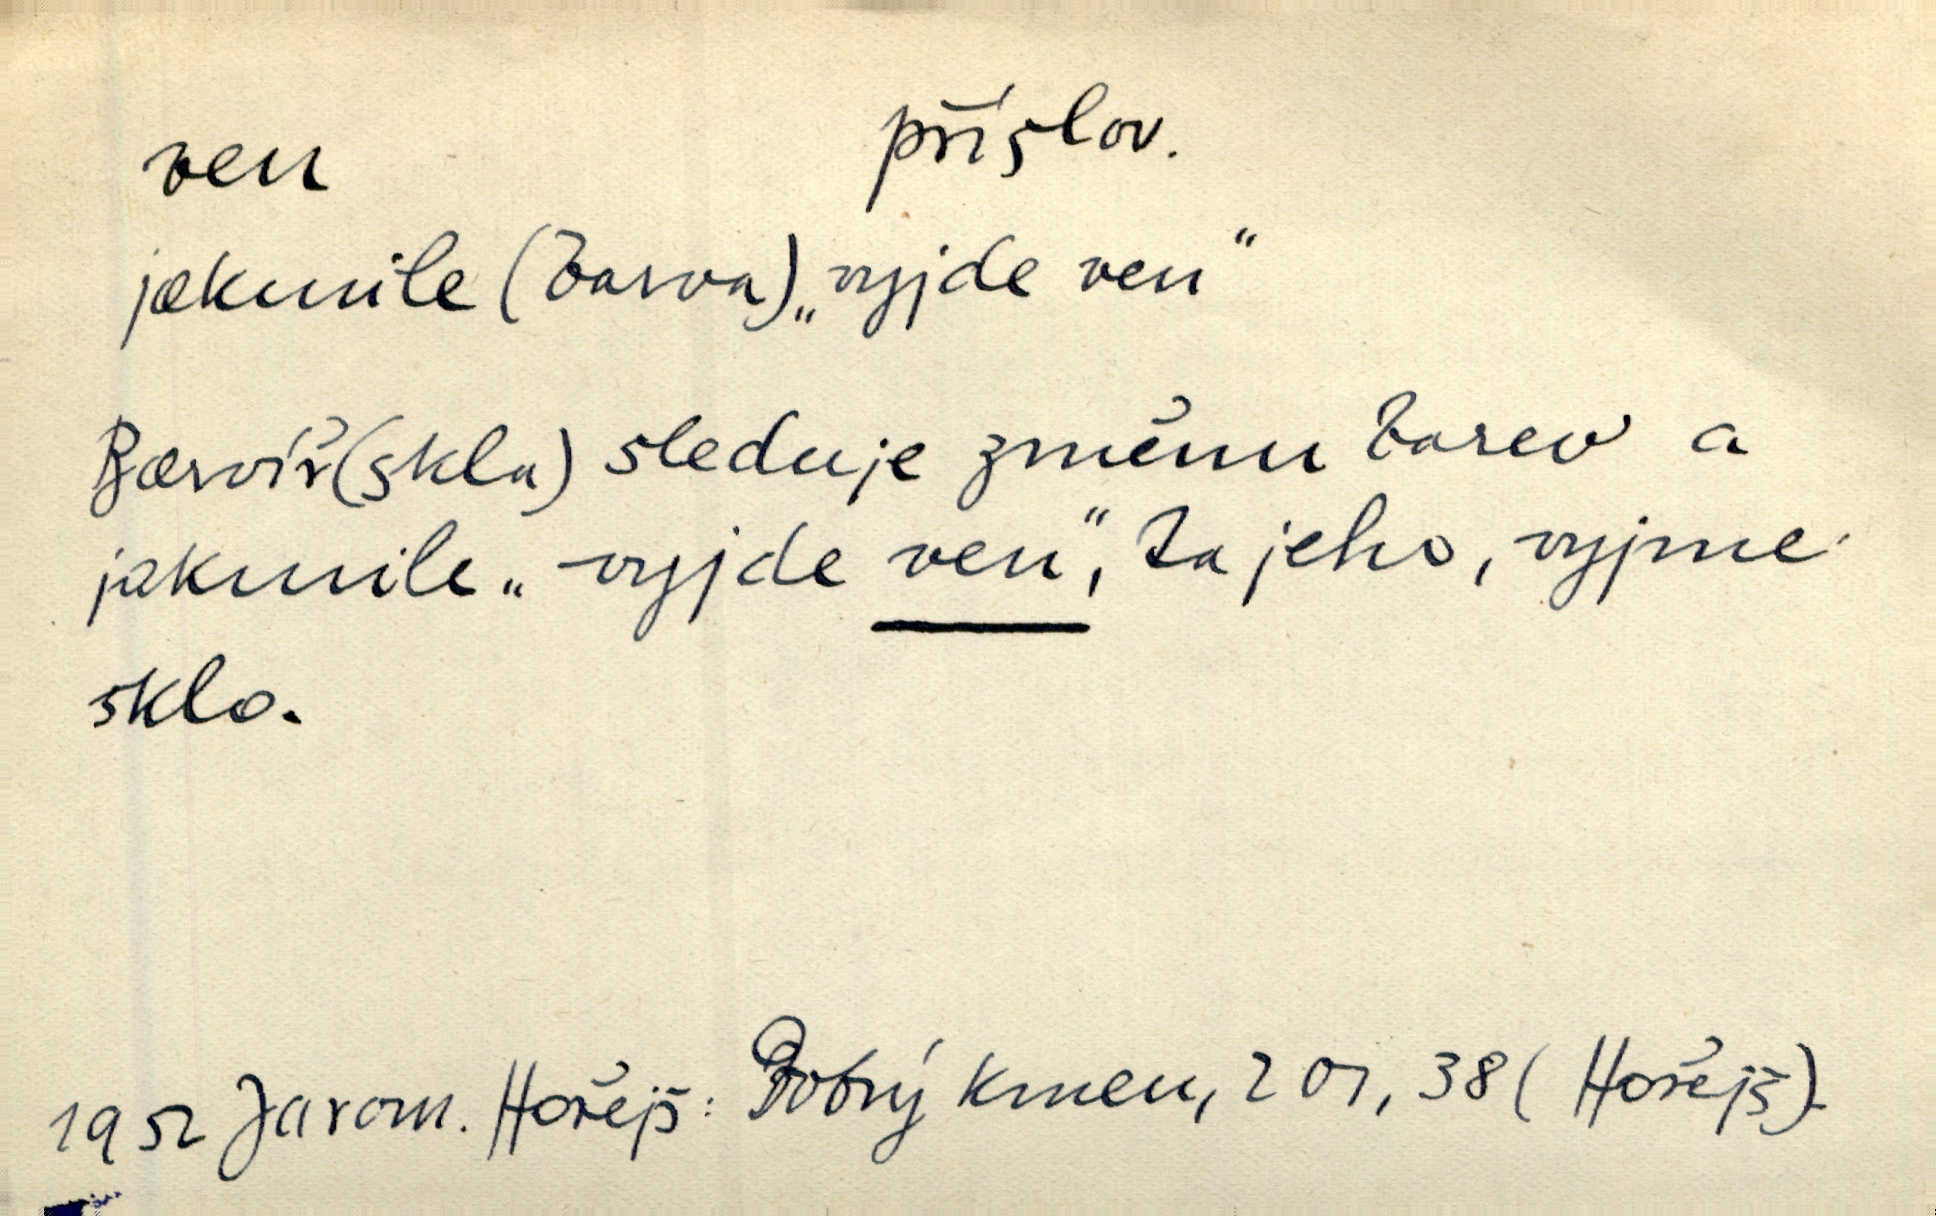 ven příslov.
jakmile (barva) „vyjde ven“
Barvíř (skla) sleduje změnu barev a
jakmile „vyjde ven“, , vyjme
sklo.
1952 Jarom. Hořejš: Dobrý kmen, 201, 38 (Hořejš)